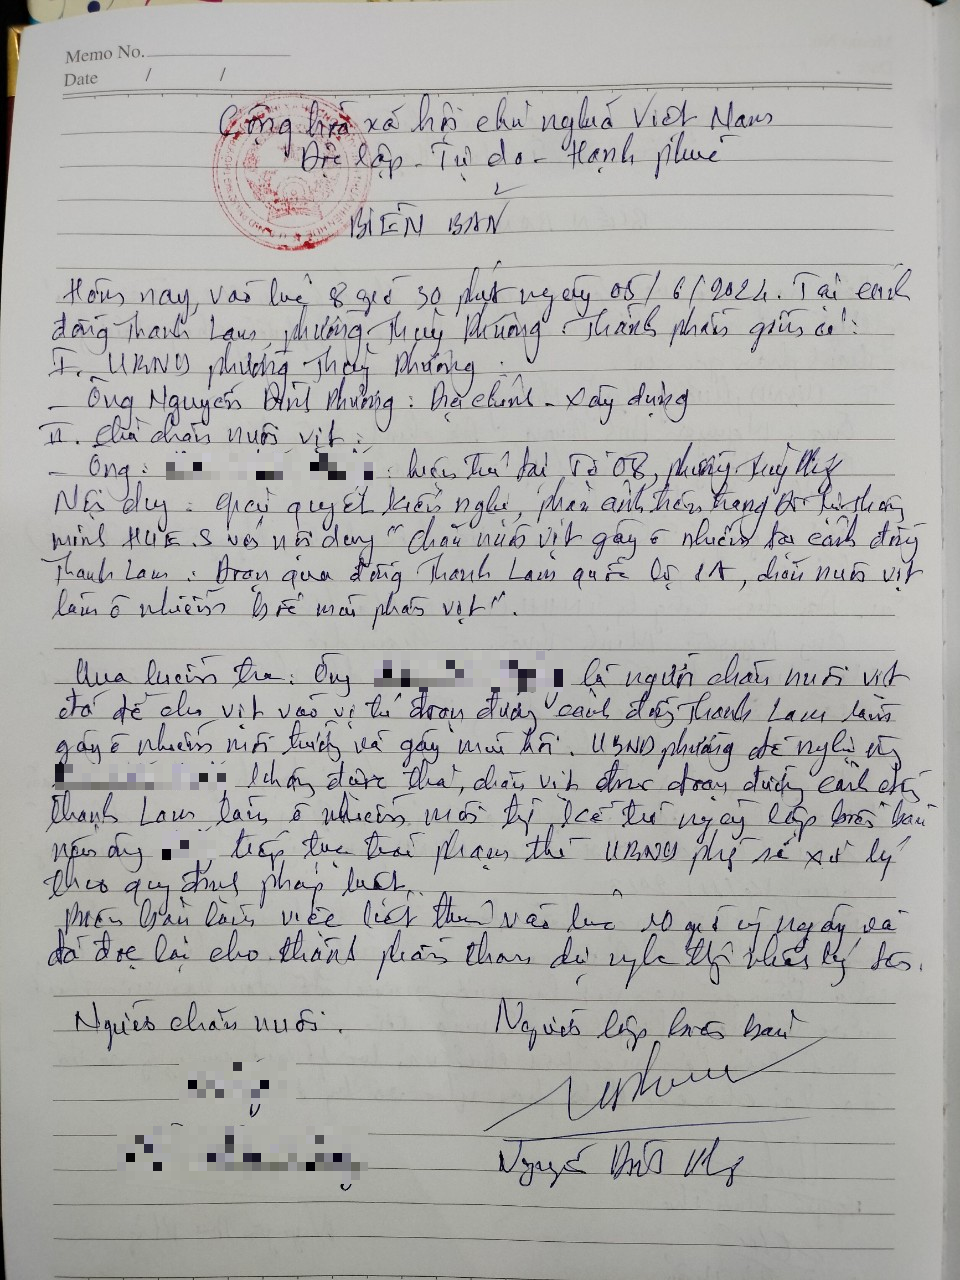 Memo No.
Date / /
Cộng hoà xã hội chủ nghĩa Việt Nam
Độc lập - Tự do - Hạnh phúc
BIÊN BẢN
Hôm nay, vào lúc 8 giờ 30 phút ngày 05/6/2024. Tại cánh
đồng Thanh Lam, phường Thuỷ Phương. Thành phần gồm có:
I. UBND phường Thuỷ Phương:
- Ông Nguyễn Đình Phương: Địa chính - Xây dựng
II. Chủ chăn nuôi vịt:
- Ông: : hiện trú tại Tổ 08, phường Thuỷ Phg
Nội dung: giải quyết kiến nghị, phản ánh hiện trạng đô thị thông
minh HUE.S với nội dung "chăn nuôi vịt gây ô nhiễm tại cánh đồng
Thanh Lam: Đoạn qua đồng Thanh Lam quốc lộ 1A, chăn nuôi vịt
làm ô nhiễm mùi phân vịt".
Qua kiểm tra: Ông là người chăn nuôi vịt
đã để cho vịt vào vị trí đoạn đường cánh đồng Thanh Lam làm
gây ô nhiễm môi trường và gây mùi hôi. UBND phường đề nghị ông
không được thả, chăn vịt đoạn đường cánh đồng
Thanh Lam làm ô nhiễm môi kể từ ngày lập biên bản
nếu ông tiếp tục tái phạm thì UBND phg sẽ xử lý
theo quy định pháp luật.
Biên bản làm việc kết thúc vào lúc 10 giờ cùng ngày và
đã đọc lại cho thành phần tham dự nghe thống nhất ký tên.
Người chăn nuôi. Người lập biên bản
Nguyễn Đình Phg